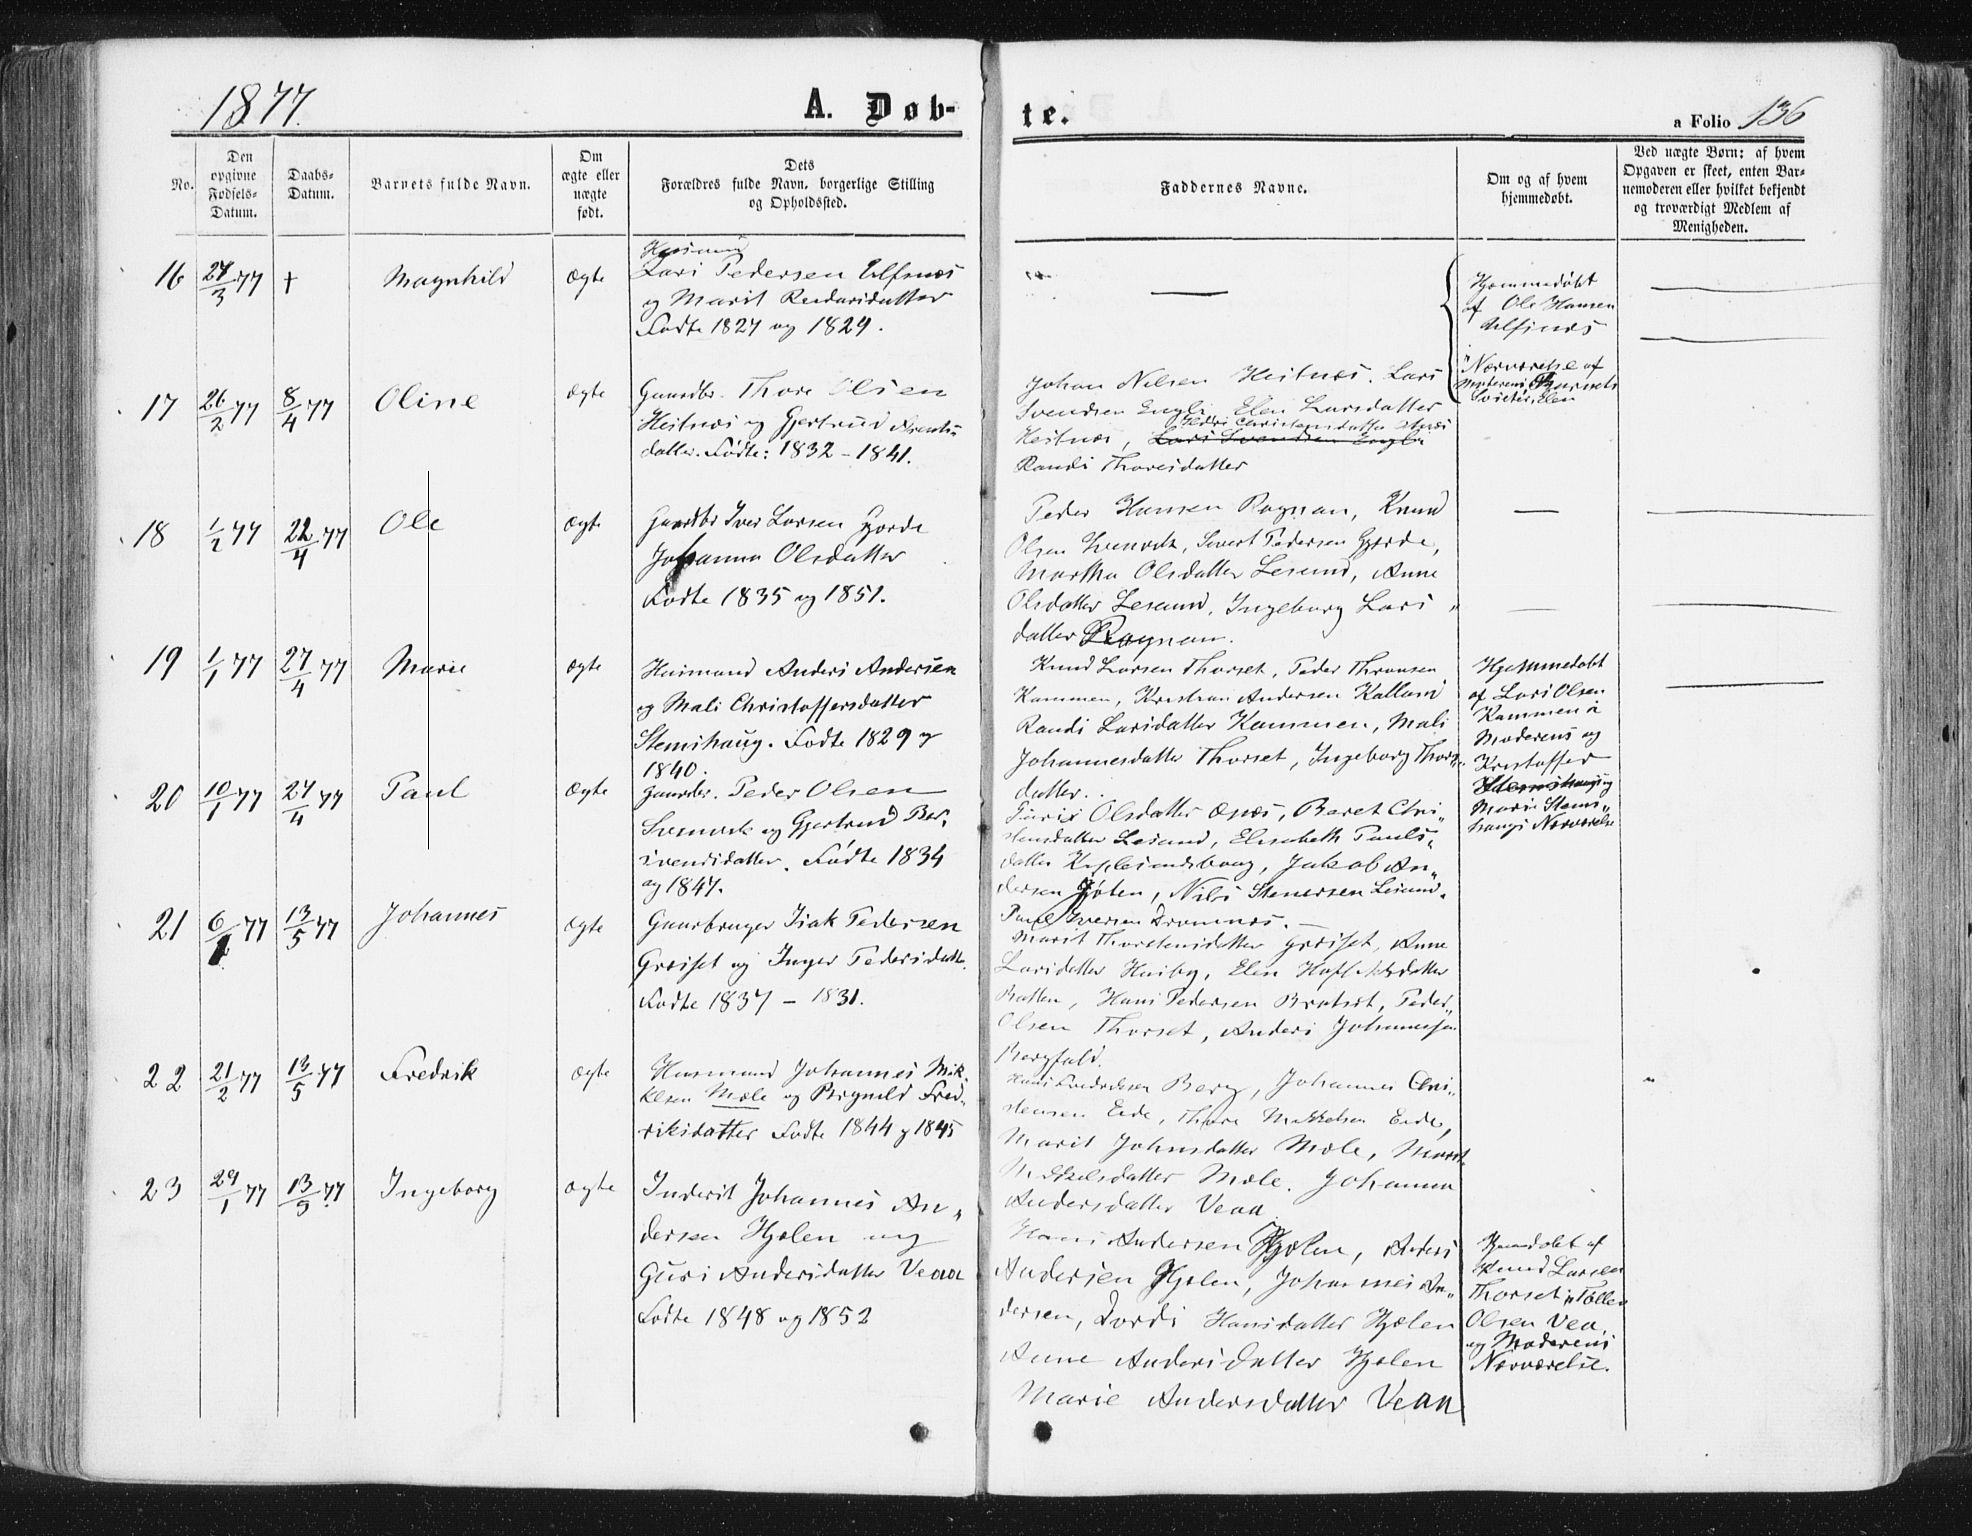 1877.
A. Døb-
te.
a Folio 136
No.
Den
opgivne
Fødsels-
Datum.
Daabs-
Datum.
Barnets fulde Navn.
Om
ægte eller
uægte
født.
Dets
Forældres fulde Navn, borgerlige Stilling
og Opholdssted.
Faddernes Navne.
Om og af hvem
hjemmedøbt.
Ved uægte Børn: af hvem
Opgaven er skeet, enten Bar-
nemoderen eller hvilket bekjendt
og troværdigt Medlem af
Menigheden.
16 27/3 77 † Magnhild ægte
Husmand
Lars Pedersen Ulfsnæs
og Marit
Fødte 1827 og 1829.
Hjemmedøbt
af Ole Hansen
Ulfsnæs
Nærværelse af
17 26/2 77 8/4 77 Oline ægte
Gaardbr. Thore Olsen
Heitnæs og Gjertrud
datter. Fødte: 1832 - 1841.
Johan Nilsen Heitnæs. Lars
Svendsen Engli, Elen Larsdatter
Heitnæs, Lars Svendsen Engli
Randi Thoresdatter
18 1/2 77 22/4 77 Ole ægte
Gaardbr Iver Larsen Gjorde
Johanna Olsdatter
Fødte 1835 og 1851.
Peder Hansen Rognan, Knud
Olsen Svinvik, Sivert Pedersen Gjorde,
Martha Olsdatter Lesund, Anne
Olsdatter Lesund, Ingeborg Lars
datter Rognan.
19 1/1 77 27/4 77 Marie ægte
Husmand Anders Andersen
og Mali Christoffersdatter
Stemshaug. Fødte 1829 og
1840.
Knud Larsen Thorset, Peder Thronsen
Kammen, Kristian Andersen
Randi Larsdatter Kammen, Mali
Johannesdatter Thorset, Ingeborg
datter.
Hjemmedøbt
af Lars Olsen
Kammen i
Moderens og
Kristoffer
Marie Stems
haugs Nærværelse
20 10/1 77 27/4 77 Paul ægte
Gaardbr. Peder Olsen
Svinvik og Gjertrud Ber,
svendsdatter. Fødte 1834
og 1847.
Olsdatter Ænæs, Beret Chri
stensdatter Lesund, Elisabeth Pauls
datter, Jakob An
dersen, Nils Stenersen Lesund,
Paul Iversen Dromnæs.
21 6/1 77 13/5 77 Johannes ægte
Gaarbruger Isak Pedersen
Grøiset og Inger Pedersdatt.
Fødte 1837 - 1831.
Marit Thorstensdatter Grøiset, Anne
Larsdatter Haiby, Elen
Hans Pedersen, Peder
Olsen Thorset, Anders Johannesen
Bergfald.
22 21/2 77 13/5 77 Fredrik ægte
Husmand Johannes Mik
kelsen Mæle og Brynild Fred
riksdatter Fødte 1844 og 1845
Hans Fredriksen Berg, Johannes Chri
stensen Eide, Thore Mikkelsen Eide,
Marit Johnsdatter Mæle, Marit
Mikkelsdatter Mæle. Johanna
Andersdatter Veaa
23 29/1 77 13/5 77 Ingeborg ægte
Inderst Johannes An
dersen Hjelen og
Guri Andersdatter Veaa
Fødte 1848 og 1852
Hans Andersen Hjelen, Anders
Andersen Hjelen, Johannes An
dersen, Dordi Hansdatter Hjælen
Anne Andersdatter Hjelen
Marie Andersdatter Veaa
Hjemdøbt af
Knud Larsen
Thorset i Tollen
Olsen Vea,
og Moderens
Nærværelse.